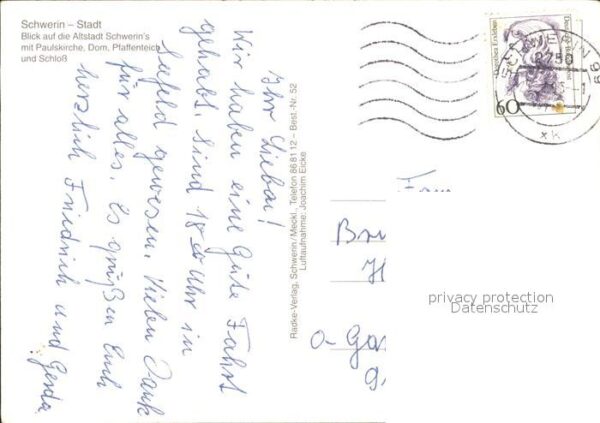 Schwerin – Stadt
Blick auf die Altstadt Schwerin's
mit Paulskirche, Dom, Pfaffenteich
und Schloß
Ihr Lieben!
Wir haben eine Gute Fahrt
gehabt. Sind 18 00 Uhr in
gewesen. Vielen Dank
für alles. Es grüßen Euch
herzlich Friedrich und Gerda
Radke-Verlag, Schwerin/Meckl., Telefon 86 81 12 – Best.-Nr. 52
Luftaufnahme: Joachim Eicke
SCHWERIN
2750
60
privacy protection
Datenschutz